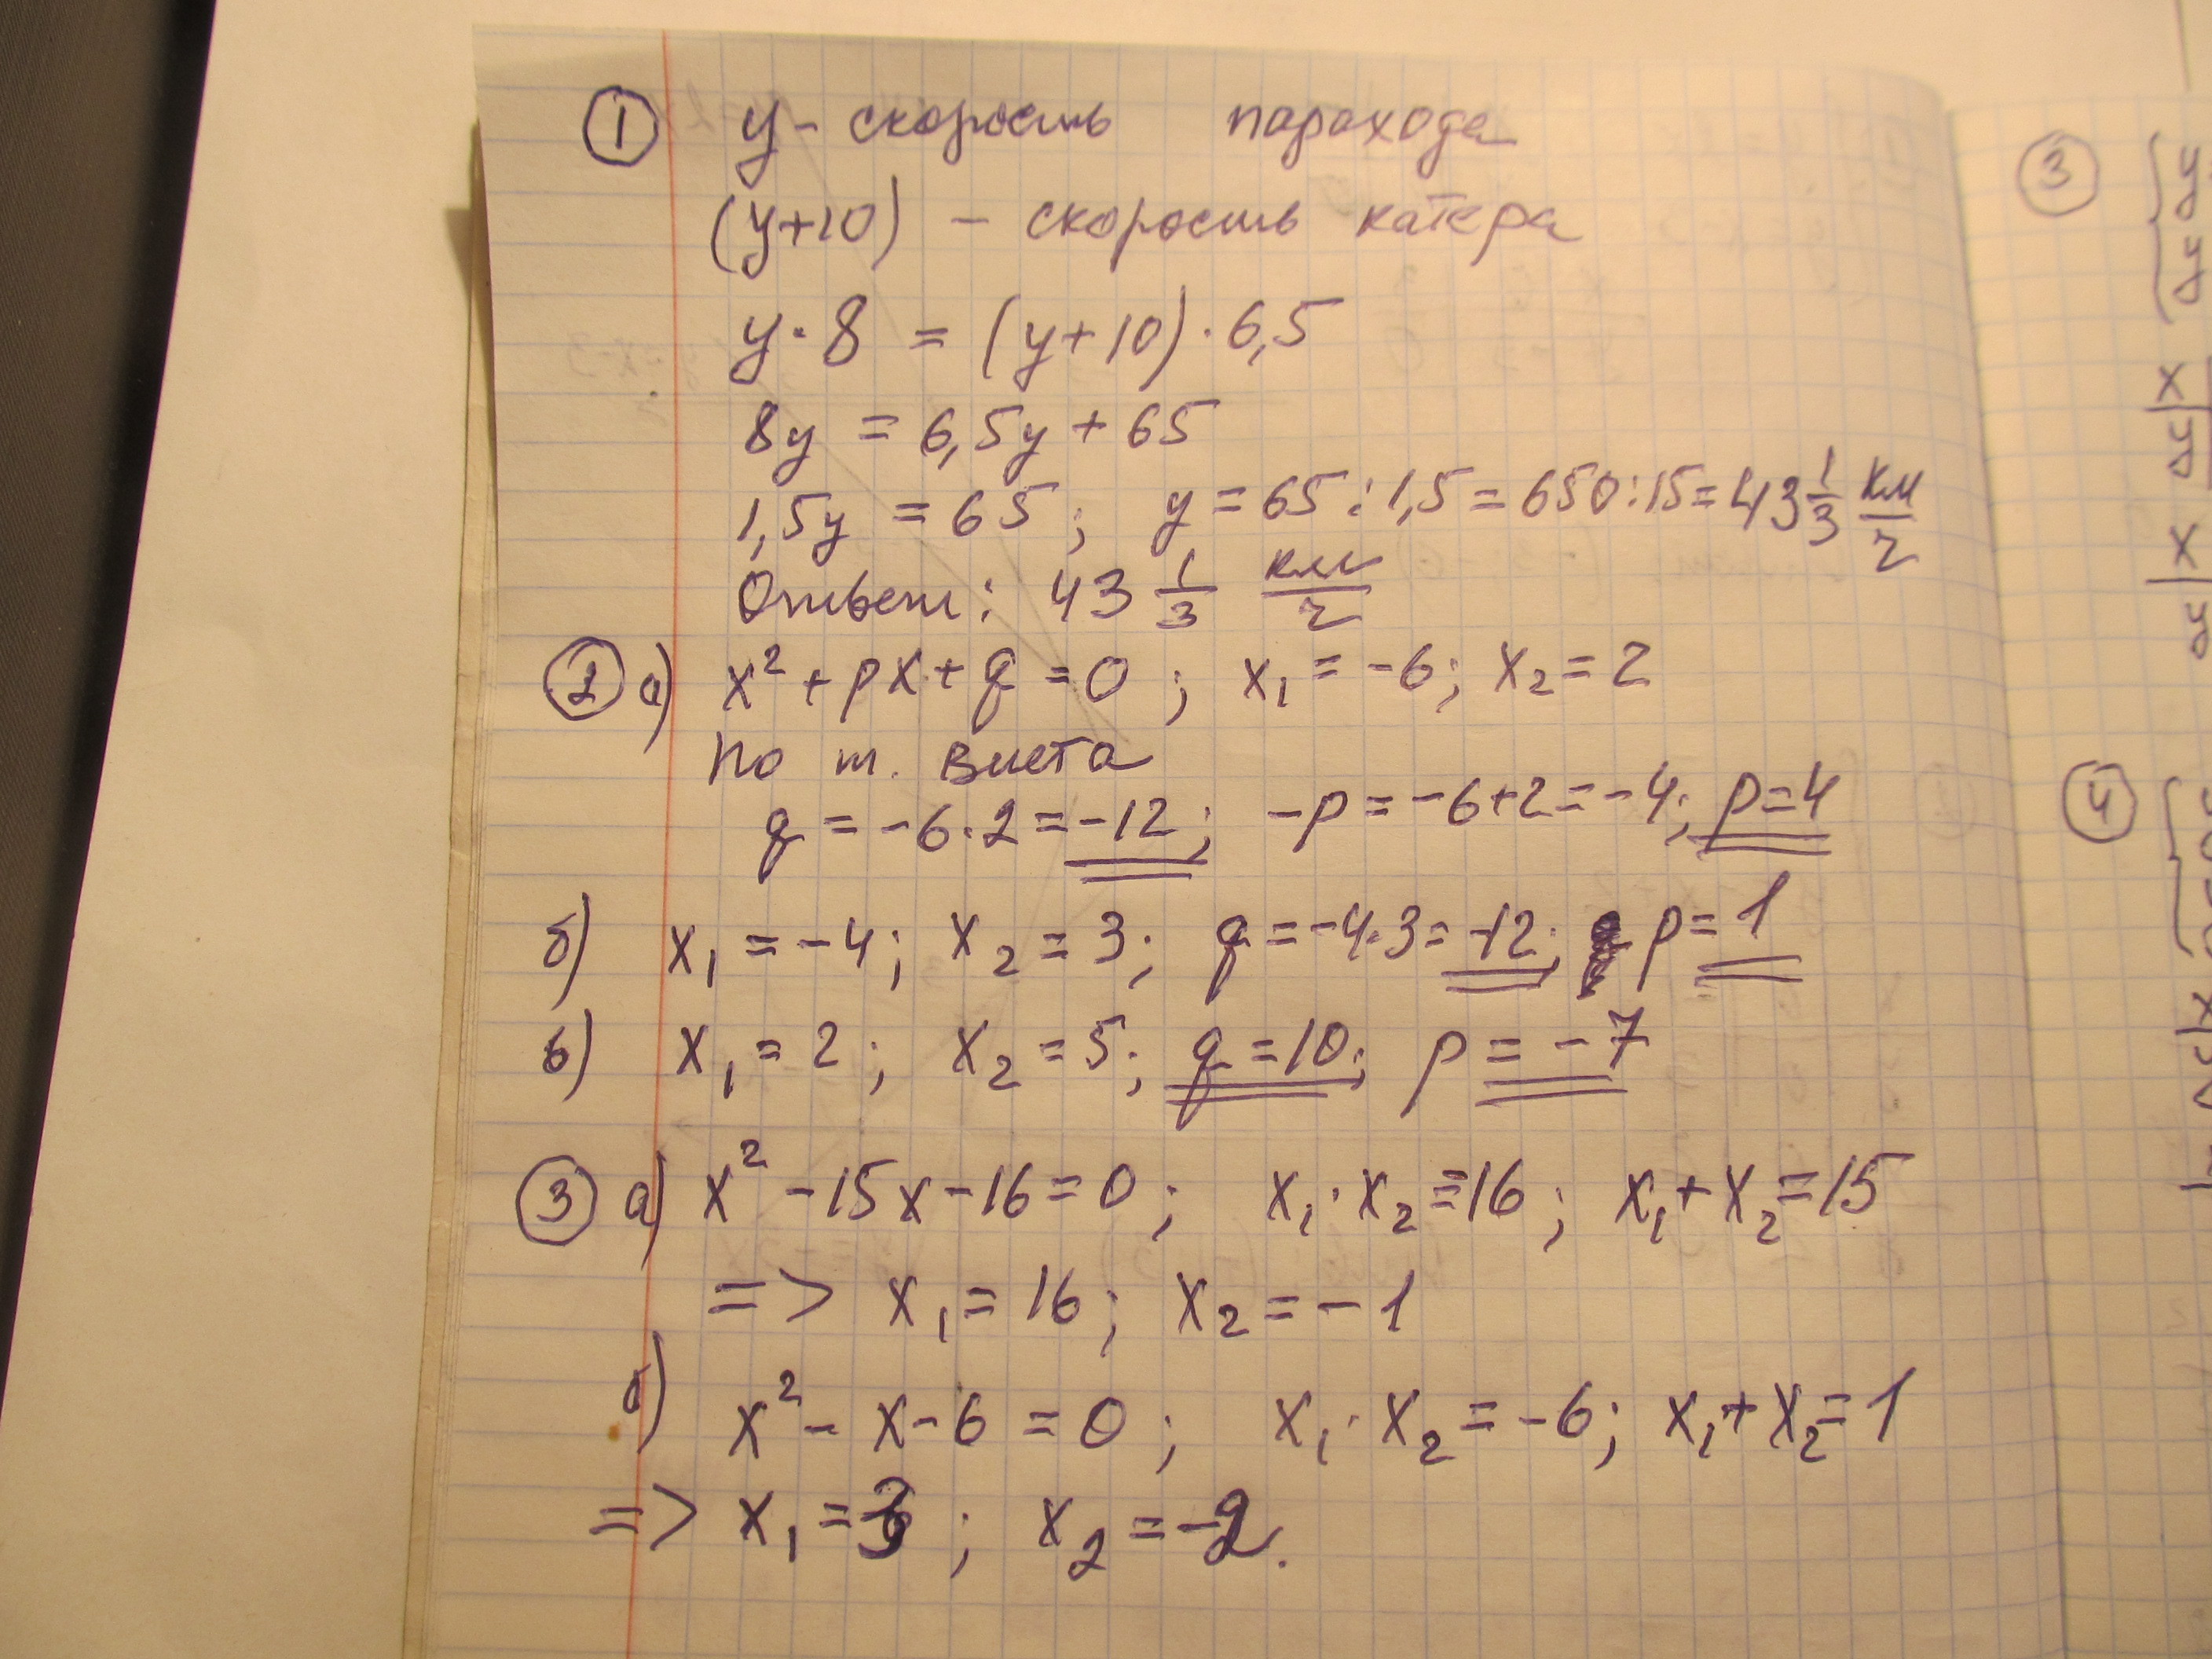 ① y - скорость парохода
(y+10) - скорость катера
y · 8 = (y+10) · 6,5
8y = 6,5y + 65
1,5y = 65 ; y = 65 : 1,5 = 650 : 15 = 43 1/3 км/ч
Ответ: 43 1/3 км/ч
② а) x² + px + q = 0 ; x₁ = -6 ; x₂ = 2
по т. Виета
q = -6 · 2 = -12 ; -p = -6+2 = -4 ; p = 4
б) x₁ = -4 ; x₂ = 3 ; q = -4 · 3 = -12 ; p = 1
в) x₁ = 2 ; x₂ = 5 ; q = 10 ; p = -7
③ а) x² - 15x - 16 = 0 ; x₁ · x₂ = 16 ; x₁ + x₂ = 15
=> x₁ = 16 ; x₂ = -1
б) x² - x - 6 = 0 ; x₁ · x₂ = -6 ; x₁ + x₂ = 1
=> x₁ = 3 ; x₂ = -2.
③
④